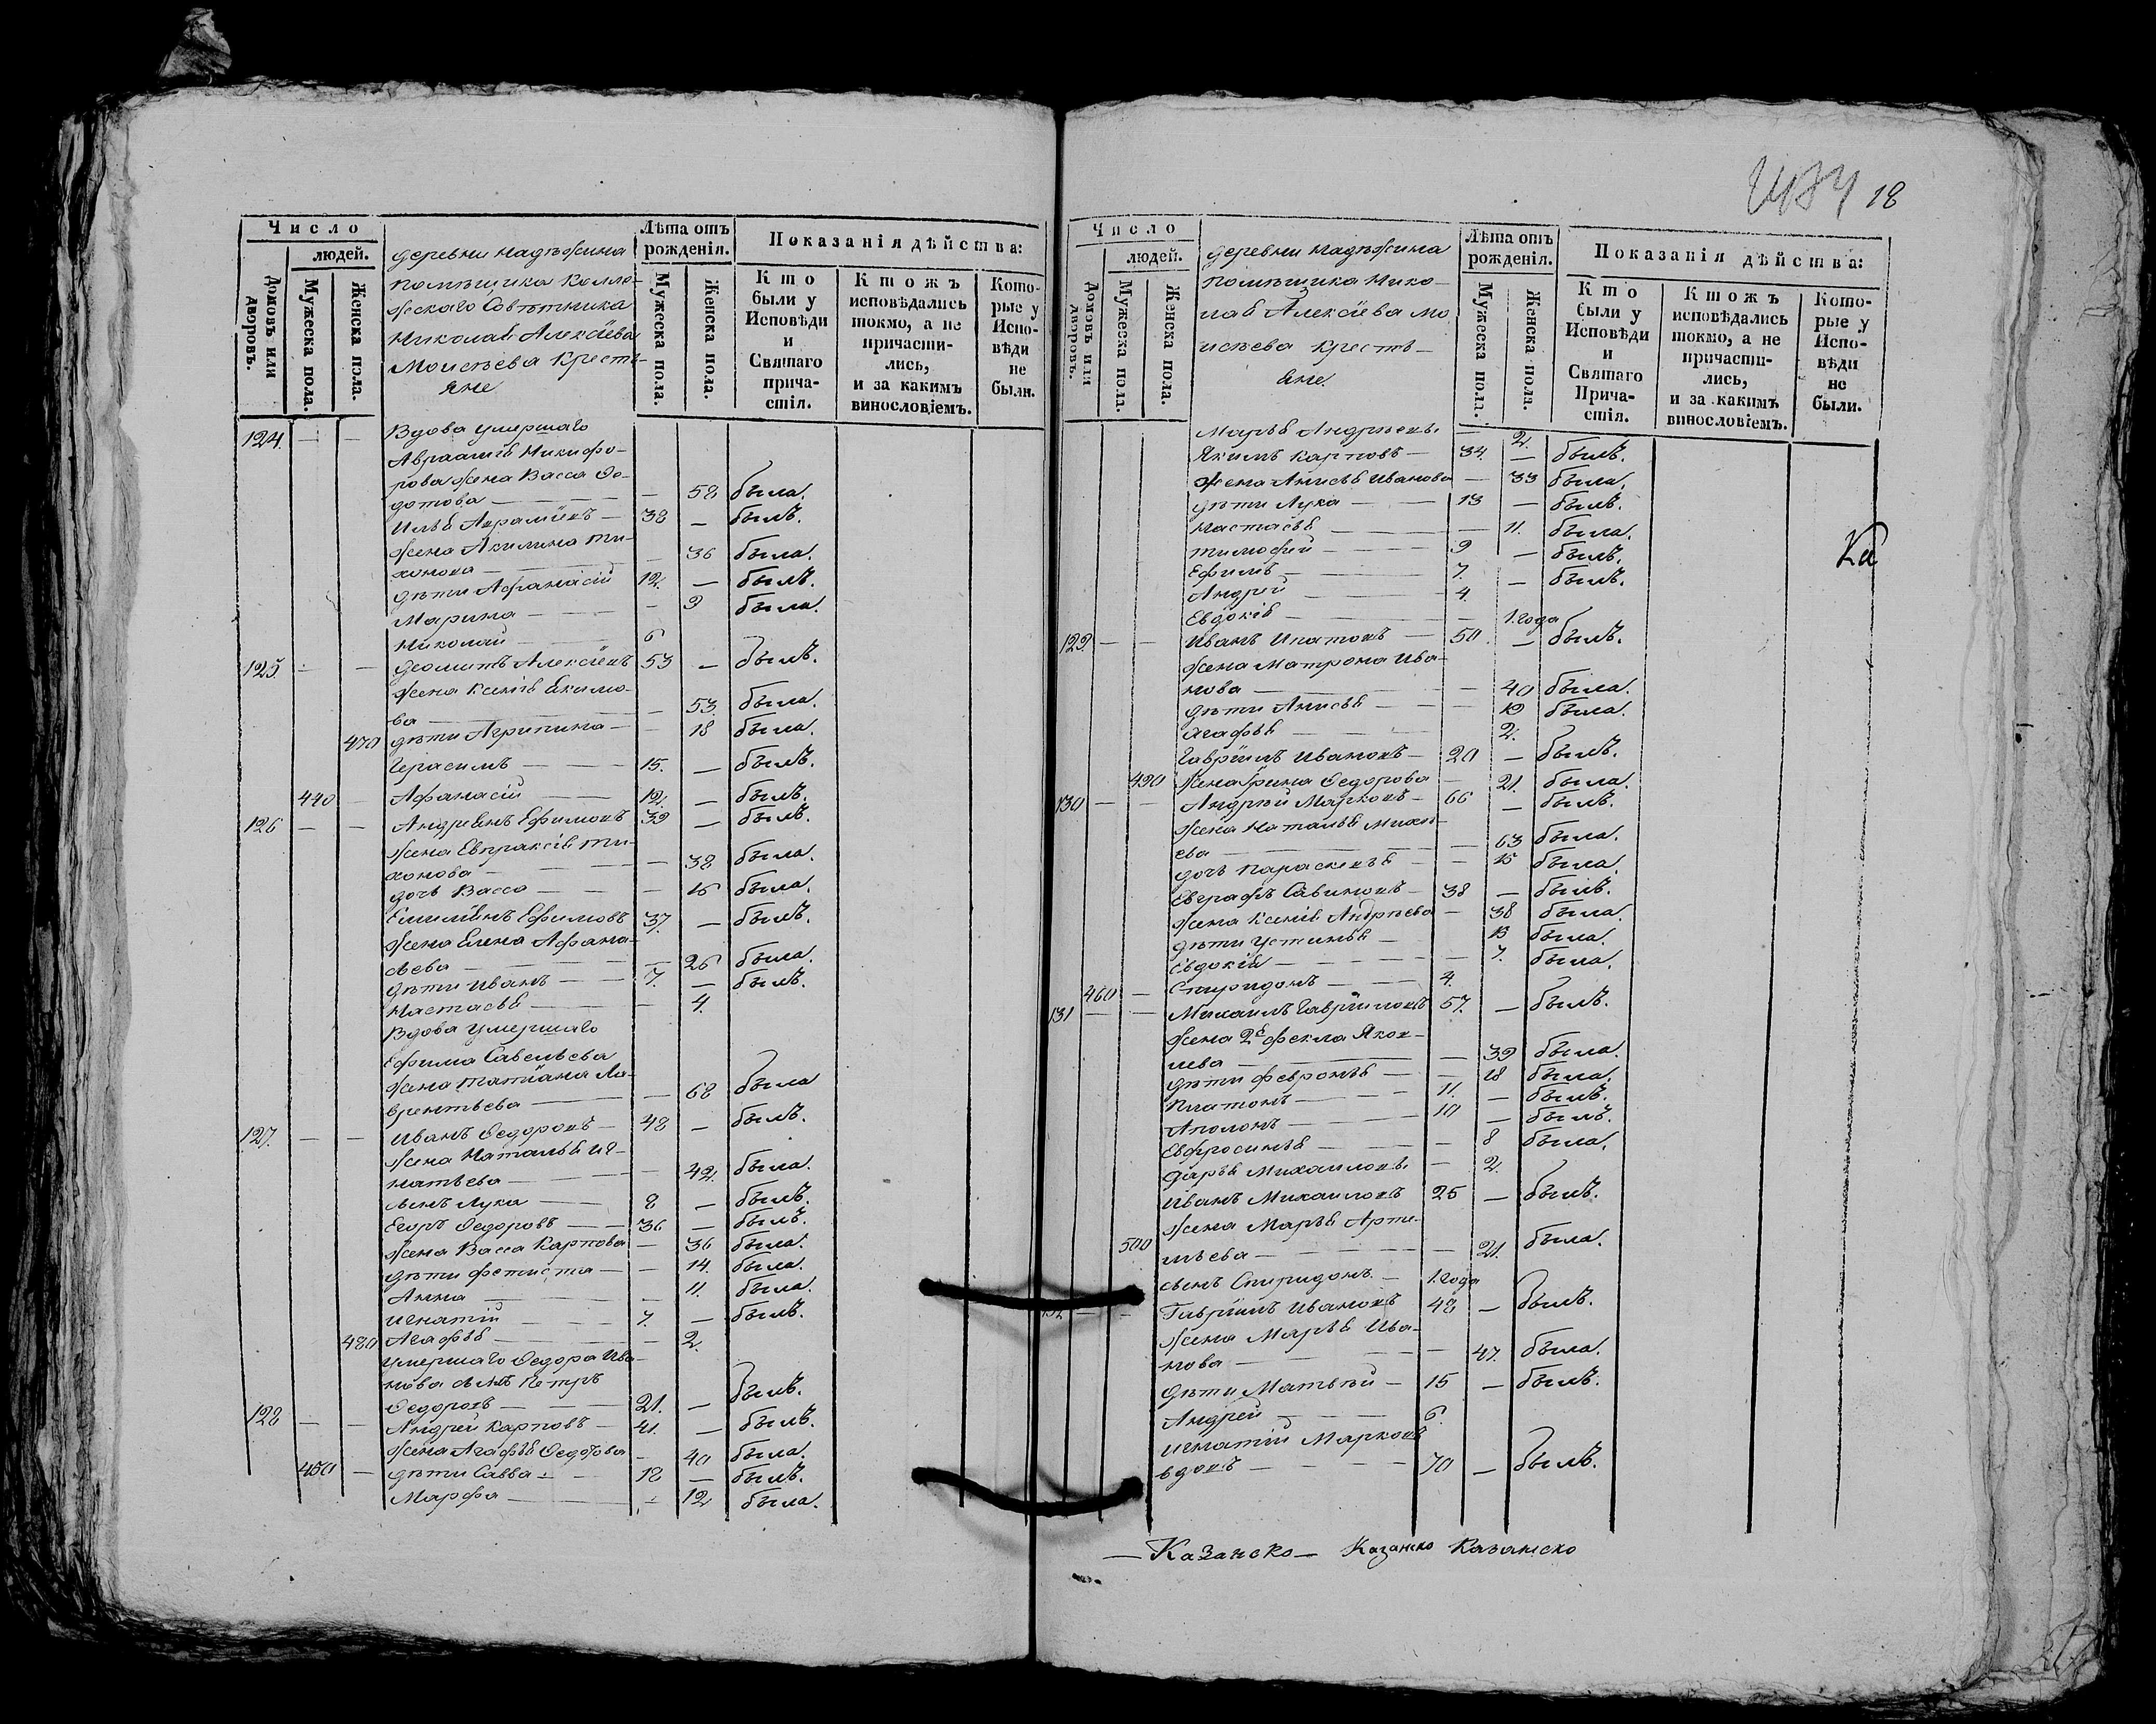 Число
людей.
Домовъ или дворовъ.
Мужеска пола.
Женска пола.
деревни Надѣжина
помѣщика Колле-
жскаго Совѣтника
Николая Алексѣева
Моисѣева Кресть-
яне
Лѣта отъ рожденія.
Мужеска пола.
Женска пола.
Показанія дѣйства:
Кто были у Исповѣди и Святаго причастія.
Ктожъ исповѣдались токмо, а не причастились, и за какимъ винословіемъ.
Которые у Исповѣди не были.
124. — — Вдова умершаго
Авраамія Никифо-
рова жена Васса Ѳе-
дотова — 58 была.
Илья Аврамовъ — 38 — былъ.
жена Акилина Ти-
хонова — 36 была.
дѣти Афанасій 12. — былъ.
Марина — 9 была.
Николай — 6
125. — — Алексѣевъ 53 — былъ.
жена Ксенія Екимо-
ва — 53 была.
470 дѣти Агрипина — 18 была.
Герасимъ — 15. — былъ.
440 — Афанасій — 12. — былъ.
126 — — Андреянъ Ефимовъ 39 — былъ.
жена Евпраксія Ти-
хонова — 38 была.
дочь Васса — 16 была.
Емиліянъ Ефимовъ 37. — былъ.
жена Елена Афана-
сьева — 26 была.
дѣти Иванъ — 7. — былъ.
Настасья — 4.
Вдова умершаго
Ефима Савельева
жена Татіяна Ла-
врентьева — 68 была
127. — — Иванъ Ѳедоровъ — 48 — былъ.
жена Наталья Иг-
натьева — 42. была.
сынъ Лука — 8 — былъ.
Егоръ Ѳедоровъ — 36 — былъ.
жена Васса Карпова — 36 была.
дѣти Фетиста — 14. была.
Анна — 11. была.
Игнатій — 7. — былъ.
480 Агафья — 2.
умершаго Ѳедора Ива-
нова сынъ Петръ
Ѳедоровъ — 21. — былъ.
128 — — Андрей Карповъ — 41. — былъ.
жена Агафья Ѳедотова — 40 была.
450 — дѣти Савва — 18 — былъ.
Марфа — 12 была.
18
Число
людей.
Домовъ или дворовъ.
Мужеска пола.
Женска пола.
деревни Надѣжина
помѣщика Нико-
лая Алексѣева Мо
исѣева Кресть-
яне.
Лѣта отъ рожденія.
Мужеска пола.
Женска пола.
Показанія дѣйства:
Кто были у Исповѣди и Святаго Причастія.
Ктожъ исповѣдались токмо, а не причастились, и за какимъ винословіемъ.
Которые у Исповѣди не были.
Марья Андреевъ. — 2.
Якимъ Карповъ — 34. — былъ.
жена Анисья Иванова — 33 была.
дѣти Лука — 13 — былъ.
Настасья — 11. была.
Тимофей — 9 — былъ.
Ефимъ — 7. — былъ.
Андрей — 4.
Евдокія — 1. года
129. — — Иванъ Ипатовъ — 50. — былъ.
жена Матрона Ива-
нова — 40 была.
дѣти Анисья — 19 была.
Агафья — 2.
Гавріилъ Ивановъ — 20 — былъ.
490 жена Ирина Ѳедорова — 21. была.
130 — — Андрей Марковъ — 66 — былъ.
жена Наталья Михе-
ева — 63 была.
дочь Параскевья — 15 была.
Евграфъ Савиновъ — 38 — былъ.
жена Ксенія Андреева — 38 была.
дѣти Устинья — 13 была.
Евдокія — 7. была.
460 — Спиридонъ — 4.
131 — — Михаилъ Гавріиловъ 57. — былъ.
жена 2я Фекла Яков-
лева — 39 была.
дѣти Февронья — 18 была.
Платонъ — 11. — былъ.
Аполонъ — 10 — былъ.
Евфросинья — 8 была.
Дарья Михаиловъ. — 2.
Иванъ Михаиловъ 25 — былъ.
жена Марья Арте-
500 мьева — 21. была.
сынъ Спиридонъ — 1. года
132 — — Гавріилъ Ивановъ 48 — былъ.
жена Марья Ива-
нова — 47. была.
дѣти Матвѣй — 15 — былъ.
Андрей — 6.
Игнатій Марковъ
вдовъ — 70 — былъ.
— Казанско — Казанско Казанско